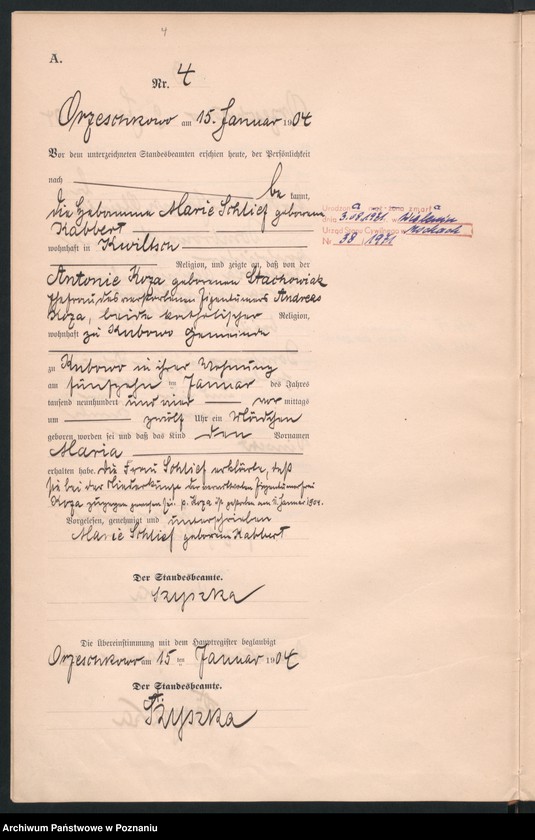 4
A.
Nr. 4
Orzeschkowo am 15. Januar 1904
Vor dem unterzeichneten Standesbeamten erschien heute, der Persönlichkeit
nach be kannt,
die Hebamme Marie Schlief geborene
Kabbert
wohnhaft in Kwiltsch
Religion, und zeigte an, daß von der
Antonie Koza geborenen Stachowiak
Ehefrau des verstorbenen Eigentümers Andreas
Koza, beide katholischer Religion,
wohnhaft zu Kubowo Gemeinde
zu Kubowo in ihrer Wohnung
am fünfzehn ten Januar des Jahres
tausend neunhundert und vier vor mittags
um zwölf Uhr ein Mädchen
geboren worden sei und daß das Kind den Vornamen
Maria
erhalten habe. Die Frau Schlief erklärte, daß
sie bei der Niederkunft der Koza zugegen gewesen sei. p. Koza ist gestorben am Januar 1904.
Vorgelesen, genehmigt und unterschrieben
Marie Schlief geborene Kabbert
Der Standesbeamte.
Szyszka
Die Übereinstimmung mit dem Hauptregister beglaubigt
Orzeschkowo am 15 ten Januar 1904
Der Standesbeamte.
Szyszka
zmarła
dnia 3.08.1971. w
Urząd Stanu Cywilnego
Nr 38 / 1971
Archiwum Państwowe w Poznaniu